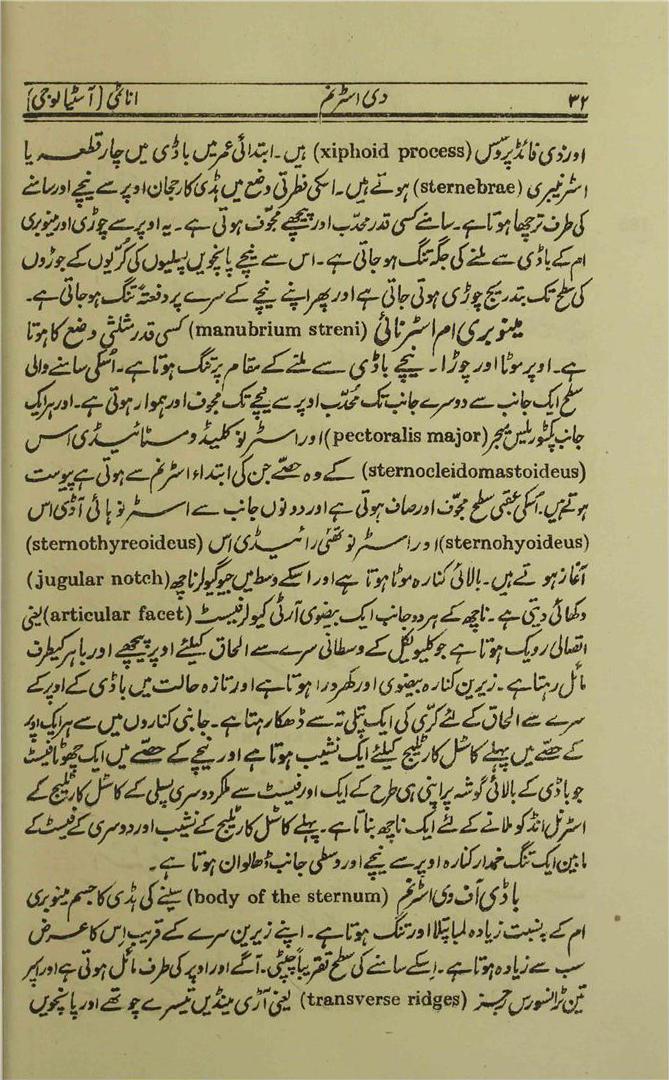 ۳۲ دی اسٹرنم اناٹمی [آسٹیالوجی]
اور ذی فائڈ پروسس (xiphoid process) ہیں۔ ابتدائی عمر میں باڈی میں چار قطعے یا
اسٹرنیبری (sternebrae) ہوتے ہیں۔ اسکی فطرتی وضع میں ہڈی کا رجحان اوپر سے نیچے اور سامنے
کی طرف ترچھا ہوتا ہے۔ سامنے کسی قدر محدّب اور پیچھے مجوّف ہوتی ہے۔ یہ اوپر سے چوڑی اور مینوبری
ام کے باڈی سے ملنے کی جگہ تنگ ہو جاتی ہے۔ اس سے نیچے پانچویں پسلیوں کی کرّیوں کے جوڑوں
کی سطح تک بتدریج چوڑی ہوتی جاتی ہے اور پھر اپنے نیچے کے سرے پر دفعتہً تنگ ہو جاتی ہے۔
مینوبری ام اسٹرنائی (manubrium streni) کسی قدر مثلثی وضع کا ہوتا
ہے۔ اوپر موٹا اور چوڑا۔ نیچے باڈی سے ملنے کے مقام پر تنگ ہوتا ہے۔ اُسکی سامنے والی
سطح ایک جانب سے دوسرے جانب تک مُحدّب اوپر سے نیچے تک مجوف اور ہموار ہوتی ہے۔ اور ہر ایک
جانب پکٹوریلیس میجر (pectoralis major) اور اسٹرنو کلیڈو مسٹائیڈی اس
(sternocleidomastoideus) کے وہ حصّے جن کی ابتداء اسٹرنم سے ہوتی ہے پیوست
ہوتے ہیں۔ اُسکی عقبی سطح مجوّف اور صاف ہوتی ہے اور دونوں جانب سے اسٹرنو ہائی آڈی اس
(sternohyoideus) اور اسٹرنو تھئی رائیڈی اس (sternothyreoideus)
آغاز ہوتے ہیں۔ بالائی کنارہ موٹا ہوتا ہے اور اسکے وسط میں جیوگیولر ناچھ (jugular notch)
دکھائی دیتی ہے۔ ناچھ کے ہر دو جانب ایک بیضوی آرٹی کیولر فیسٹ (articular facet) یعنی
اتصالی رویک ہوتا ہے جو کلیویکل کے وسطانی سرے سے الحاق کیلئے اوپر پیچھے اور باہر کیطرف
مائل رہتا ہے۔ زیرین کنارہ بیضوی اور کھردرا ہوتا ہے اور تازہ حالت میں باڈی کے اوپر کے
سرے سے الحاق کے لئے کرّی کی ایک پتلی تہ سے ڈھکا رہتا ہے۔ جانبی کناروں میں سے ہر ایک اوپر
کے حصّے میں پہلے کاسٹل کارٹلیج کیلئے ایک نشیب ہوتا ہے اور نیچے کے حصّے میں ایک چھوٹا فیسٹ
جو باڈی کے بالائی گوشہ پر اپنی ہی طرح کے ایک اور فیسٹ سے ملکر دوسری پسلی کے کاسٹل کارٹلیج کے
اسٹرنل انڈ کو ملانے کے لئے ایک ناچھ بناتا ہے۔ پہلے کاسٹل کارٹلیج کے نشیب اور دوسری کے فیسٹ کے
مابین ایک تنگ خمدار کنارہ اوپر سے نیچے اور وسطی جانب ڈھالوان ہوتا ہے۔
باڈی آف دی اسٹرنم (body of the sternum) سینے کی ہڈی کا جسم مینوبری
ام کے بہ نسبت زیادہ لمبا پتلا اور تنگ ہوتا ہے۔ اپنے زیرین سرے کے قریب اِس کا عرض
سب سے زیادہ ہوتا ہے۔ اِسکے سامنے کی سطح تقریباً چپٹی۔ آگے اور اوپر کی طرف مائل ہوتی ہے اور اسپر
تین ٹرانسورس رجز (transverse ridges) یعنی آڑی مینڈیں تیسرے چوتھے اور پانچویں